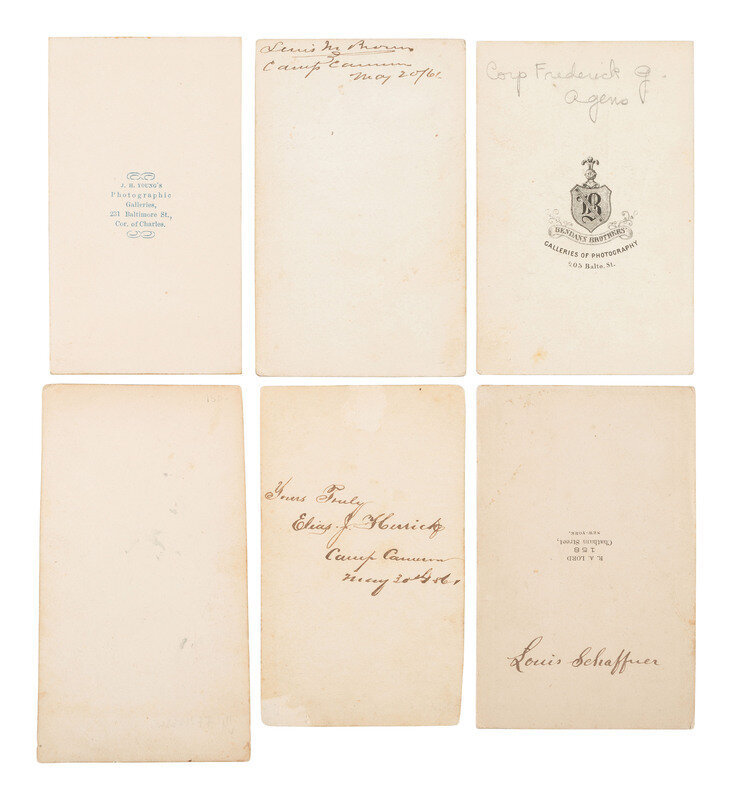 J. H. YOUNG'S
Photographic
Galleries,
231 Baltimore St.,
Cor. of Charles.
Louis M Brown
Camp Cameron
May 20/61
Corp Frederick G.
Agens
B
BENDANN BROTHERS
GALLERIES OF PHOTOGRAPHY
205 Balto. St.
Yours Truly
Elias J Herrick
Camp Cameron
May 20th 1861
R. A. LORD
158
Chatham Street,
NEW-YORK.
Louis Schaffner